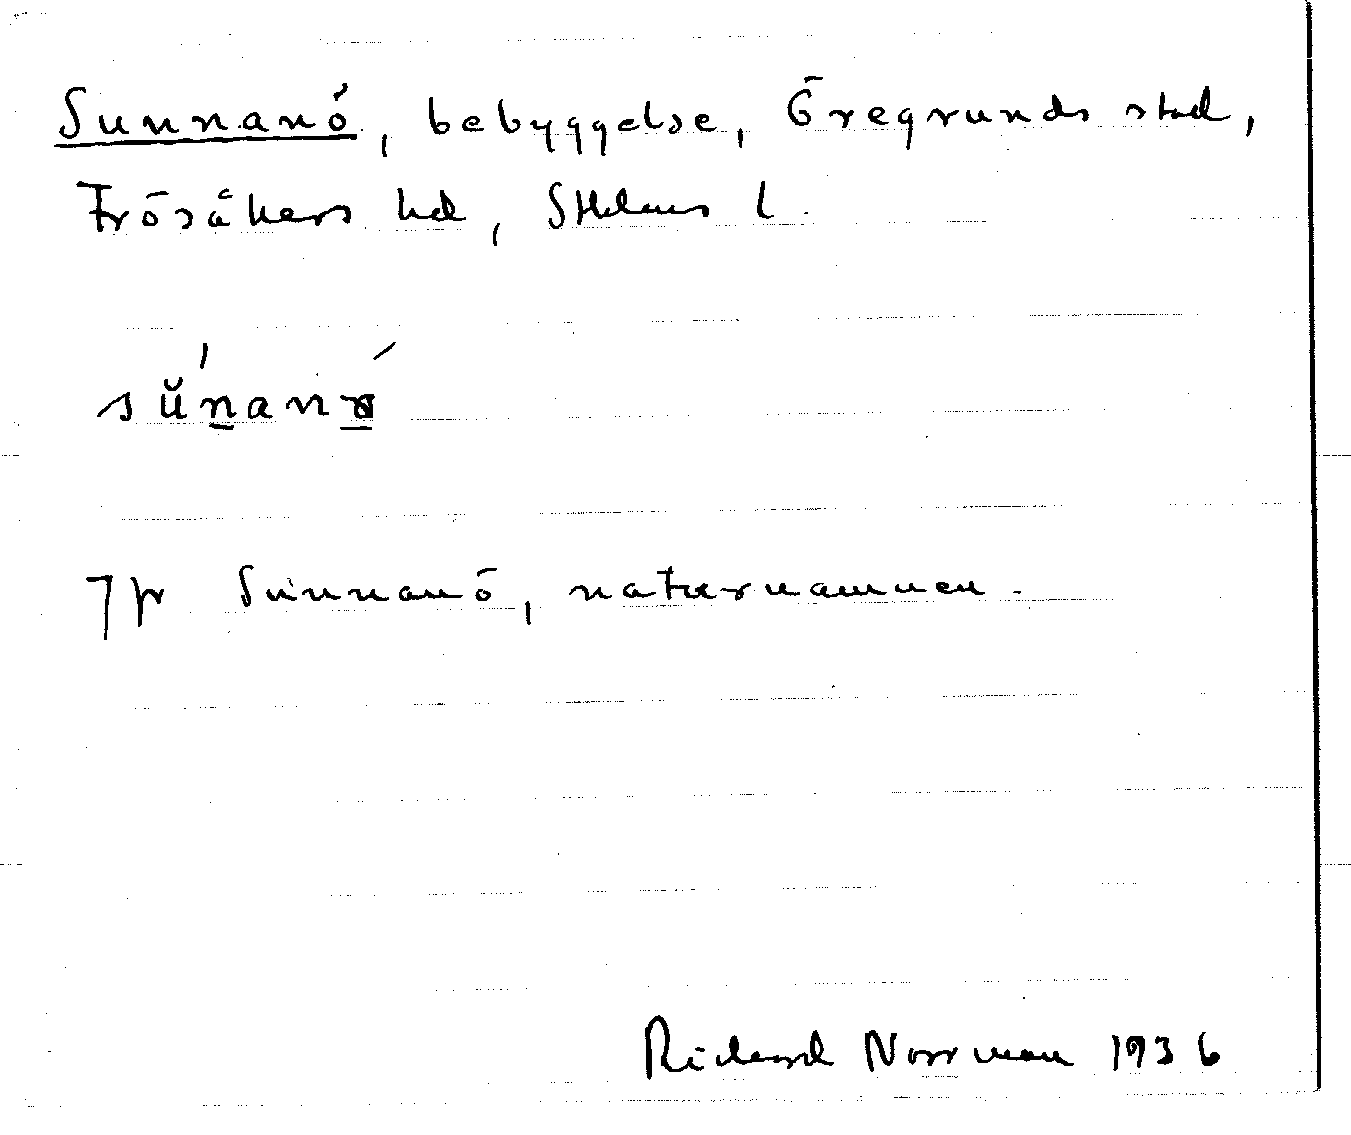 Sunnanö, bebyggelse, Öregrunds stad,
Frösåkers hd, Sthlms l.
sŭnanö
Jfr Sunnanö, naturnamnen.
Rickard Norrman 1936